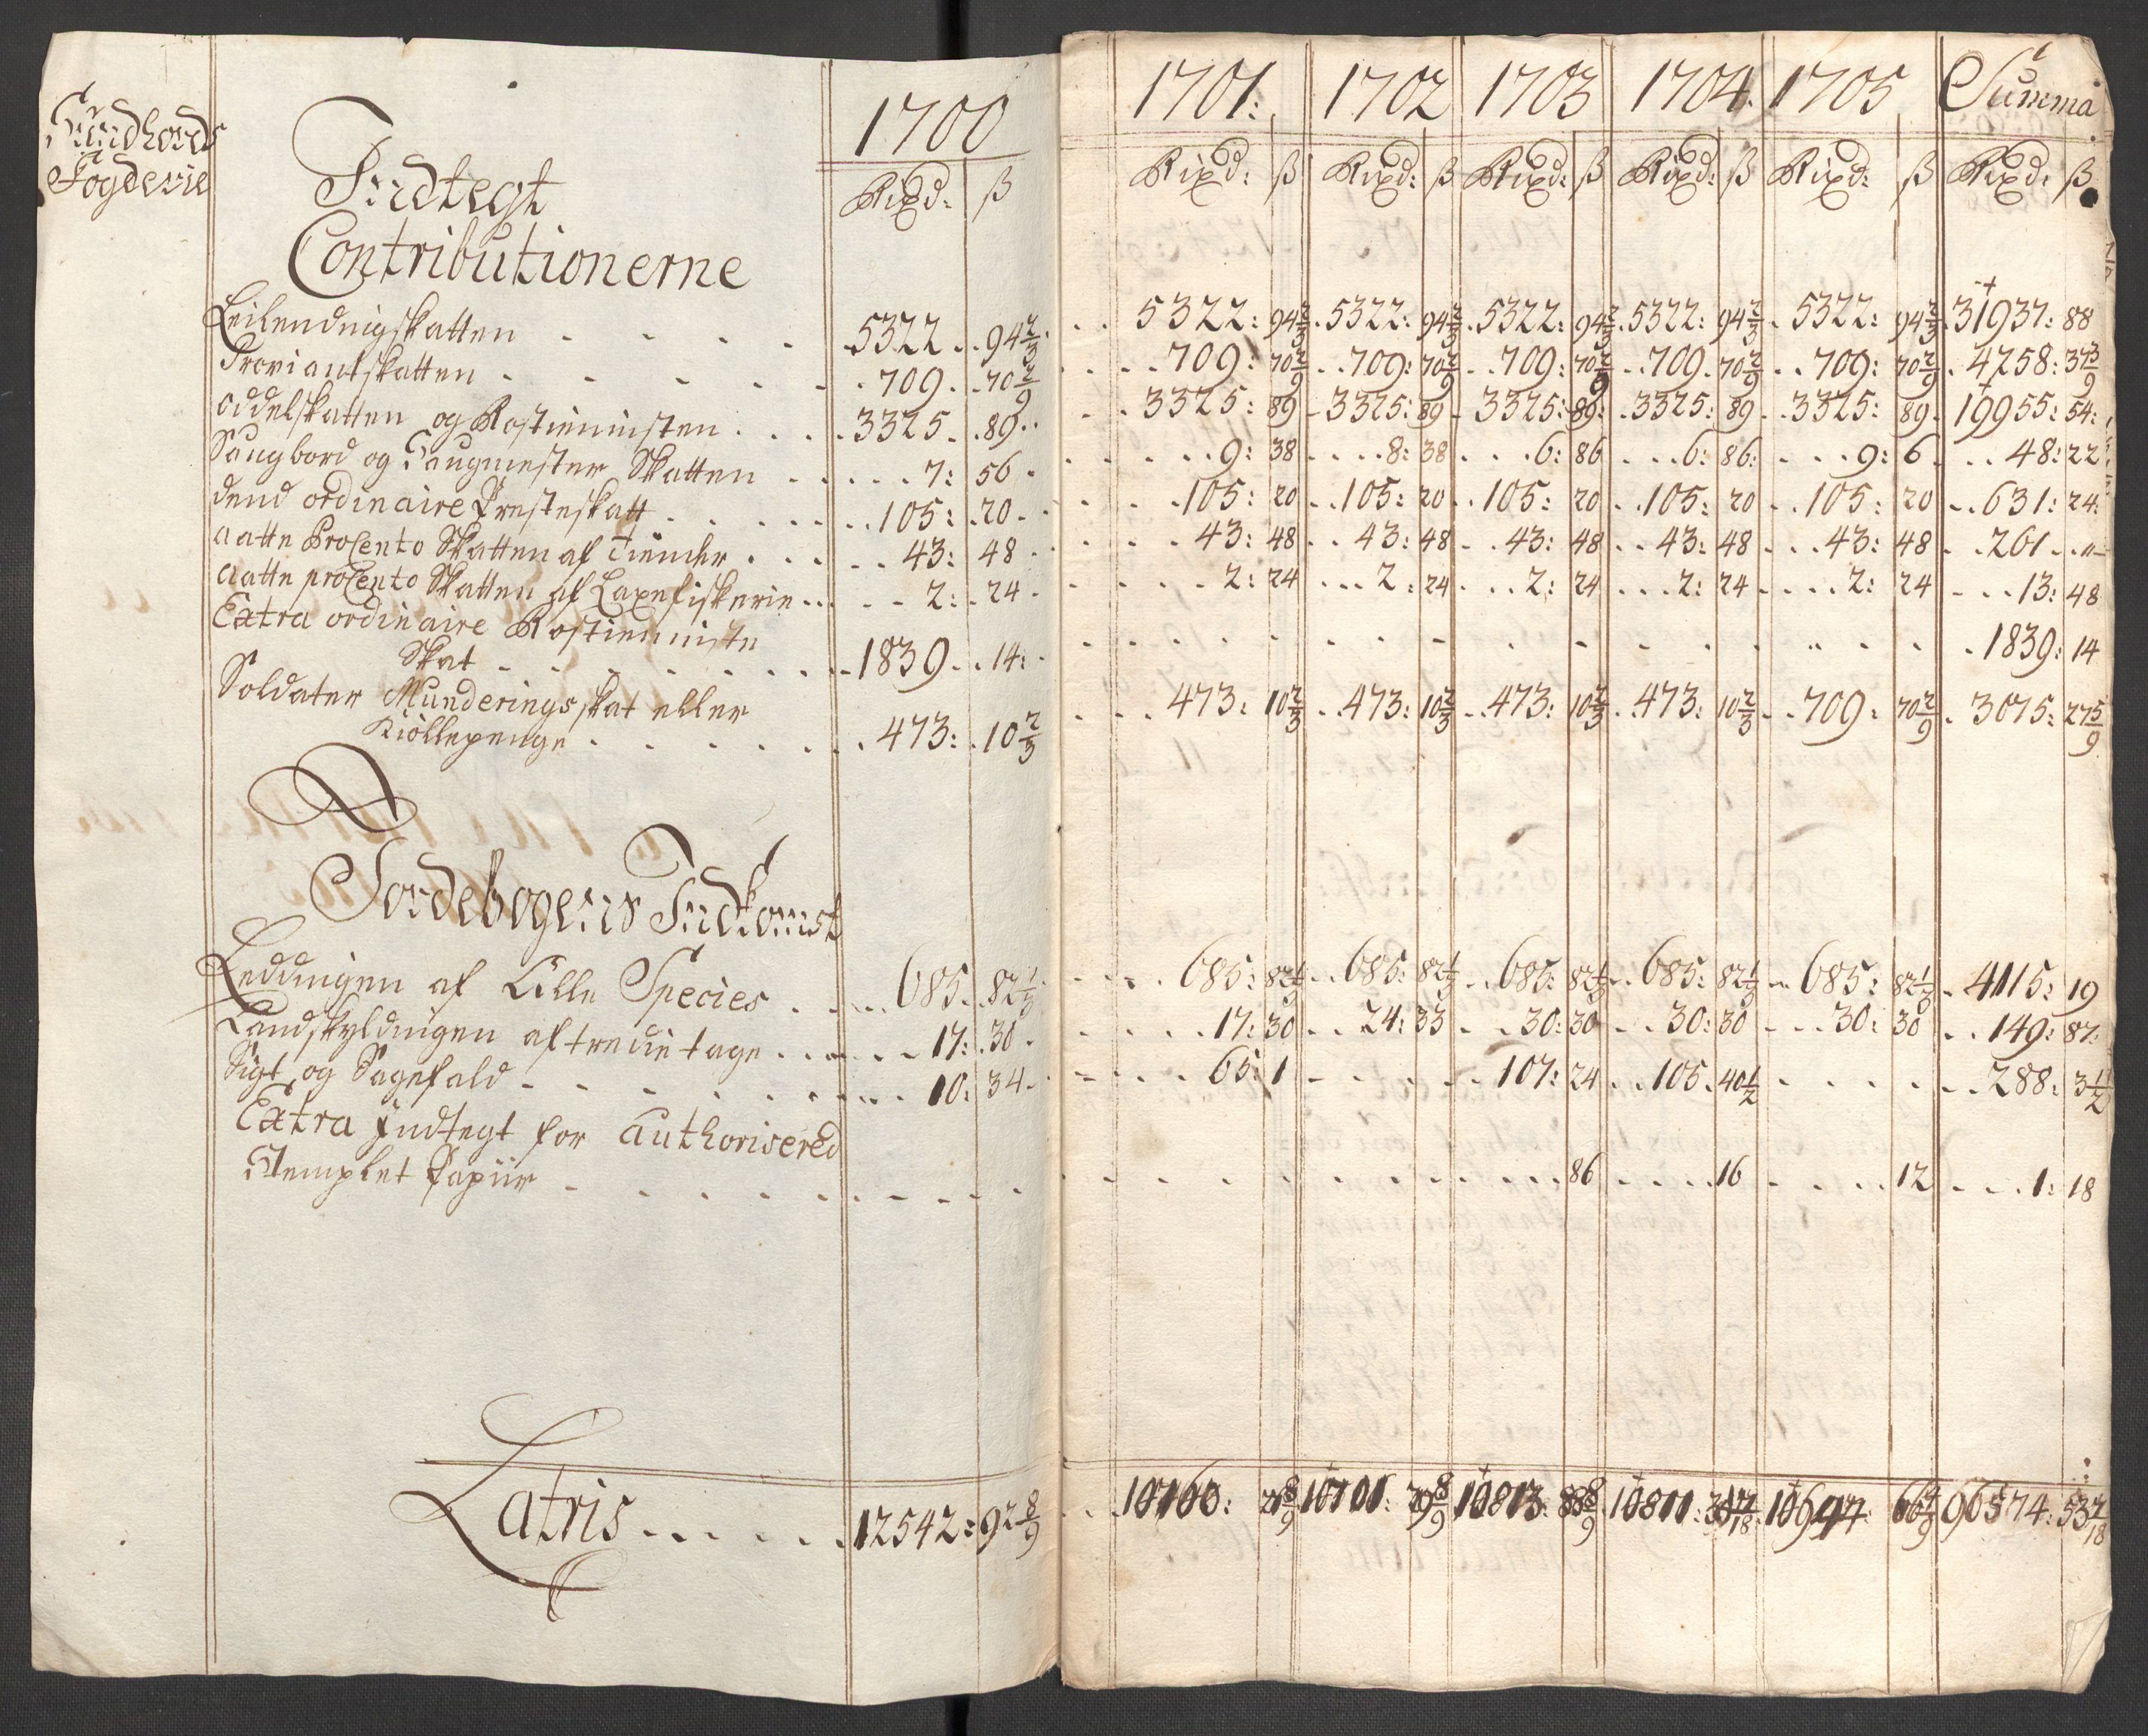 Sundhords
Fogderie
Indtegt
Contributionerne
1700 1701: 1702 1703 1704. 1705 Summa
Rixd: ß Rixd: ß Rixd: ß Rixd: ß Rixd: ß Rixd: ß Rixd: ß
Leilendingskatten 5322 94 2/3 5322: 94 2/3 5322: 94 2/3 5322: 94 2/3 5322: 94 2/3 5322: 94 2/3 31937: 88
Proviantskatten 709 70 2/9 709: 70 2/9 709: 70 2/9 709: 70 2/9 709 70 2/9 709: 70 2/9 4258: 37 3/9
Oddelskatten og Rostienisten 3325 89 3325: 89 3325: 89 3325: 89: 3325: 89 3325: 89 19955: 54:
Saugbord og Saugmester Skatten 7: 56 9: 38 8: 38 6: 86 6: 86: 9: 6 48: 22
dend ordinaire Presteskatt 105: 20 105: 20 105: 20 105: 20 105: 20 105: 20 631: 24:
aatte ProCento Skatten af Tiender 43: 48 43: 48 43: 48 43: 48 43: 48 43: 48 261 "
aatte proCento Skatten af Laxefiskerie 2: 24 2: 24 2: 24 2: 24 2: 24 2: 24 13: 48
Extra ordinaire Rostienniste
Skat 1839 14: 1839: 14
Soldater Munderings skat eller
Kiöllepenge 473: 10 2/3 473: 10 2/3 473: 10 2/3 473: 10 2/3 473: 10 2/3 709: 70 2/9 3075: 27 5/9
Jordebogens Indkomst
Leddingen af Alle Species 685 82 1/3 685: 82 1/3 685: 82 1/3 685: 82 1/3 685: 82 1/3 685: 82 1/3 4115: 19
Landskyldingen af tredie tage 17: 30 17: 30 24: 33 30: 30 30: 30 30: 30 149: 87:
Sigt og Sagefald 10: 34 65: 1 107: 24 105 40 1/2 288: 3 1/2
Extra Indtegt for authorisered
Stemplet Papiir 86 16 12 1: 18
Latris 12542: 92 8/9 10160: 8/9 10701: 8/9 10813: 8/9 10811: 96574: 53 7/18